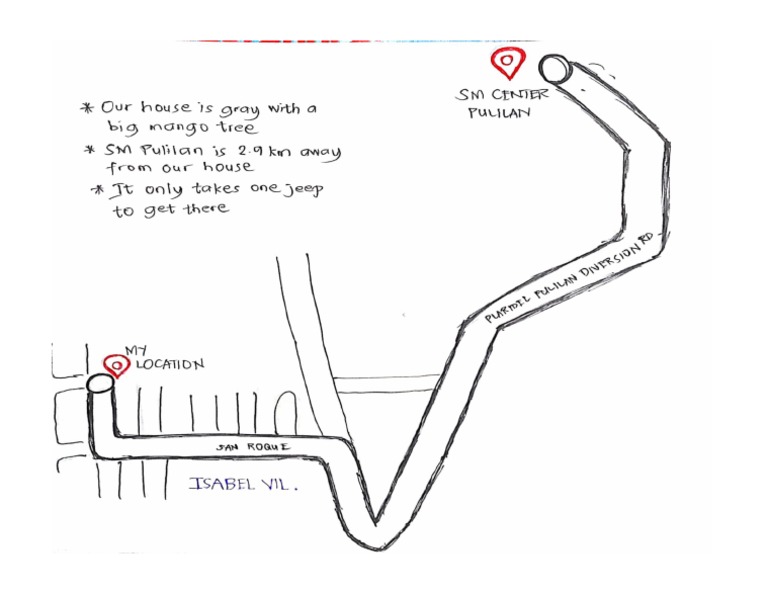 * Our house is gray with a
big mango tree
* SM Pulilan is 2.9 km away
from our house
* It only takes one jeep
to get there
SM CENTER
PULILAN
PLARIDEL PULILAN DIVERSION RD
MY
LOCATION
SAN ROQUE
ISABEL VIL.